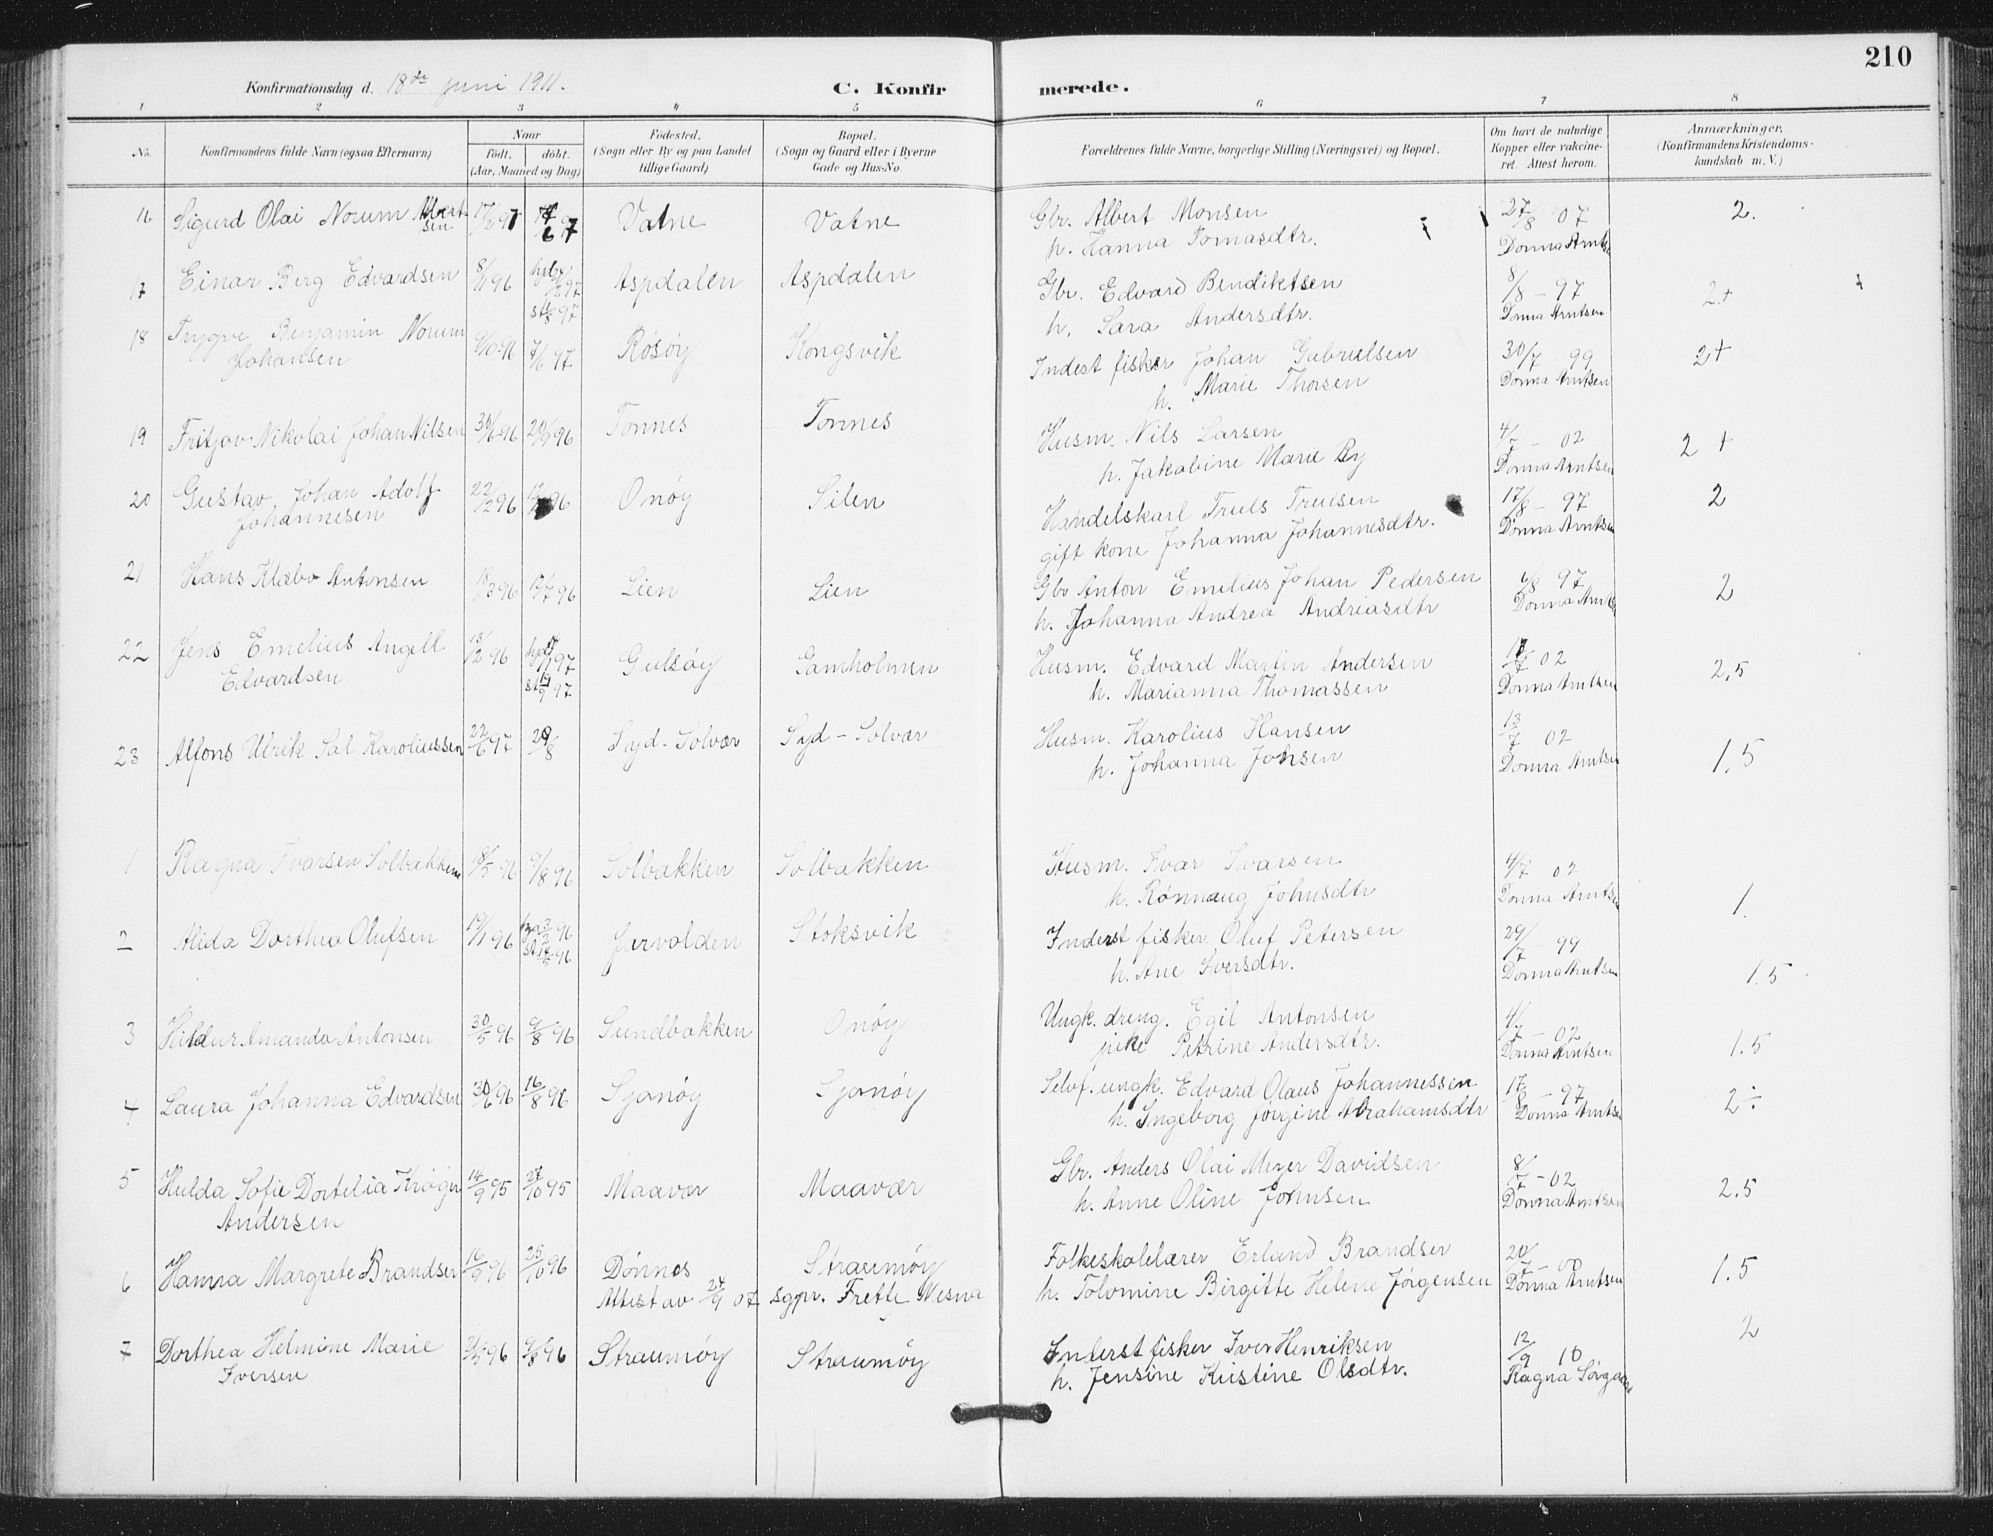 210
Konfirmationsdag d. 18de juni 1911.
C. Konfirmerede.
1 2 3 4 5 6 7 8
No.
Konfirmandens fulde Navn (ogsaa Efternavn)
Naar
født. døbt.
(Aar, Maaned og Dag)
Fødested.
(Sogn eller By og paa Landet
tillige Gaard)
Bopæl.
(Sogn og Gaard eller i Byerne
Gade og Hus-No.
Forældrenes fulde Navne, borgerlige Stilling (Næringsvei) og Bopæl.
Om havt de naturlige
Kopper eller vakcine-
ret. Attest herom.
Anmærkninger.
(Konfirmandens Kristendoms-
kundskab m. V.)
16 Sigurd Olai Norum Albert- 17/2 97 Vatne Vatne Gbr. Albert Monsen 27/8 07 2.
sen h. Hanna Tomasdtr. Donna Arntsen
17 Einar Berg Edvardsen 8/11 96 Aspdalen Aspdalen Gbr. Edvard Bendiktsen 8/8 - 97 2+
st 97 h. Sara Andersdtr. Donna Arntsen
18 Trygve Benjamin Norum 9/10 96 7/6 97 Røsøy Kongsvik Indest fisker Johan Gabrielsen 30/7 99 2+
Johansen h. Marie Thorsen Donna Arntsen
19 Fritjov Nikolai Johan Nilsen 30/6 96 96 Tonnes Tonnes Husm. Nils Larsen 4/7 - 02 2+
h. Jakobine Marie By Donna Arntsen
20 Gustav Johan Adolf 22/2 96 96 Onøy Silen Handelskarl Truls Trulsen 17/8 - 97 2
Johannesen gift kone Johanna Johannesdtr. Donna Arntsen
21 Hans Klæbo Antonsen 18/3 96 12/7 96 Lien Lien Gbr Anton Emelius Johan Pedersen 6/8 97 2
h. Johanna Andrea Andriasdtr Donna Arntsen
22 Jens Emelius Angell 13/12 96 97 Gulsøy Gamholmen Husm. Edvard Martin Andersen 02 2,5
Edvardsen st 19/9 97 h. Marianna Thomassen Donna Arntsen
23 Alfons Ulrik Sal Karoliussen 22/6 97 29/8 Syd-Solvær Syd-Solvær Husm. Karolius Hansen 13/7 02 1,5
h. Johanna Johsen Donna Arntsen
1 Ragna Ivarsen Solbakken 96 9/8 96 Solbakken Solbakken Husm. Ivar Ivarsen 4/7 02 1.
h. Rønnaug Johnsdtr Donna Arntsen
2 Alida Dorthea Olufsen 19/1 96 96 Jervolden Stoksvik Inderst fisker Oluf Petersen 29/7 - 99 1.5
st 96 h. Ane Iversdtr. Donna Arntsen
3 Hildur Amanda Antonsen 30/5 96 9/8 96 Sundbakken Onøy Ungk. dreng. Egil Antonsen 4/7 - 02 1.5
pike Petrine Andersdtr. Donna Arntsen
4 Laura Johanna Edvardsen 30/6 96 16/8 96 Sjonøy Sjonøy Selvf. ungk. Edvard Olaus Johannessen 17/8 - 97 2÷
h. Ingeborg Jørgine Abrahamsdtr Donna Arntsen
5 Hulda Sofie Dortelia Krøger 14/9 95 27/10 95 Maavær Maavær Gbr. Anders Olai Meyer Davidsen 8/7 - 02 2.5
Andersen h. Anne Oline Johnsen Donna Arntsen
6 Hanna Margrete Brandser 16/9 96 25/10 96 Dønnes Straumøy Folkeskolelærer Erland Brandser 20/7 - 00 1.5
Attest av 24/9 07 sgpr. Frette Nesna h. Tolomine Birgitte Helene Jørgensen Donna Arntsen
7 Dorthea Helmine Marie 96 9/8 96 Straumøy Straumøy Inderst fisker Iver Henriksen 12/9 10 2
Iversen h. Jensine Kristine Olsdtr. Ragna Sørgaard